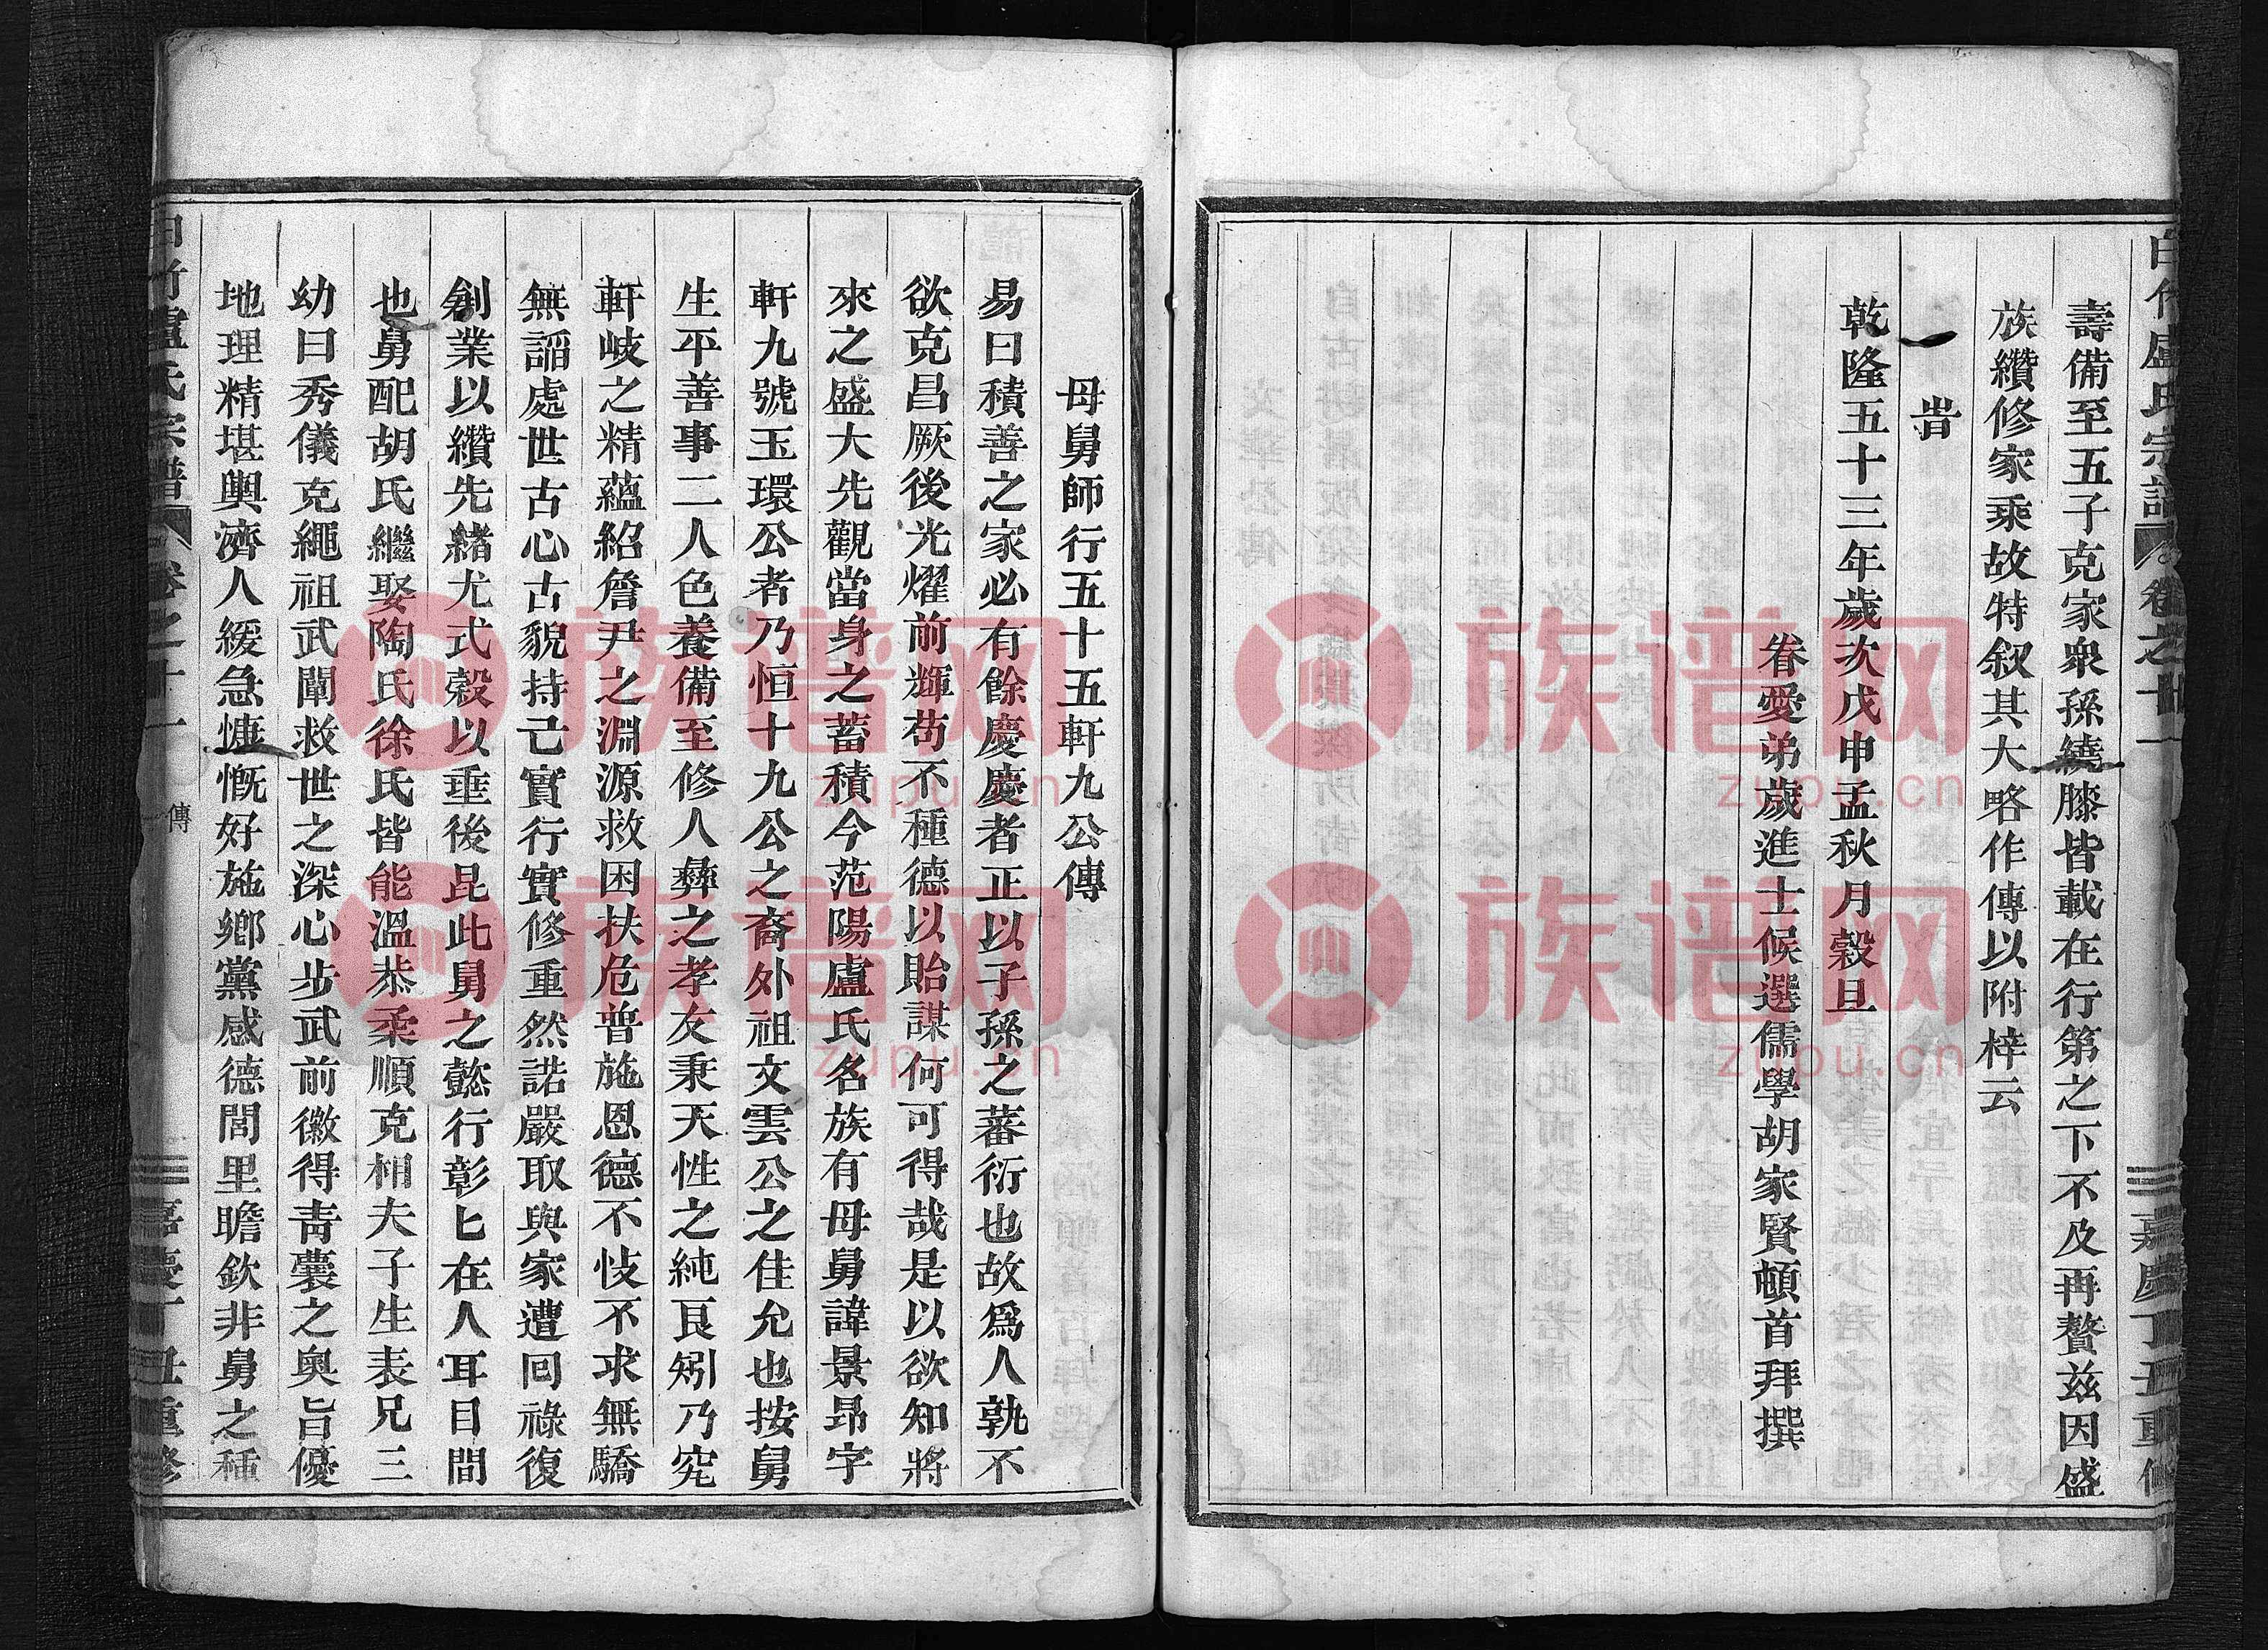 壽備至五子克家衆孫繞膝皆載在行第之下不及再贅茲因盛
族纘修家乘故特叙其大略作傳以附梓云
旹
乾隆五十三年歲次戊申孟秋月穀旦
眷愛弟歲進士候選儒學胡家賢頓首拜撰
母舅師行五十五軒九公傳
易曰積善之家必有餘慶慶者正以子孫之蕃衍也故爲人孰不
欲克昌厥後光燿前輝苟不種德以貽謀何可得哉是以欲知將
來之盛大先觀當身之蓄積今范陽盧氏名族有母舅諱景昂字
軒九號玉環公者乃恒十九公之裔外祖文雲公之佳允也按舅
生平善事二人色養備至修人彝之孝友秉天性之純良矧乃究
軒岐之精蘊紹詹尹之淵源救困扶危普施恩德不忮不求無驕
無謟處世古心古貌持己實行實修重然諾嚴取與家遭回祿復
創業以纘先緒尤式榖以垂後昆此舅之懿行彰匕在人耳目間
也舅配胡氏繼娶陶氏徐氏皆能溫恭柔順克相夫子生表兄三
幼曰秀儀克繩祖武闡救世之深心步武前徽得靑囊之奥旨優
地理精堪輿濟人緩急慷慨好施鄉黨感德閭里瞻欽非舅之種
盧氏宗譜 卷之十一 傳 嘉慶丁丑重修
族谱网
zupu.cn
族谱网
zupu.cn
族谱网
zupu.cn
族谱网
zupu.cn